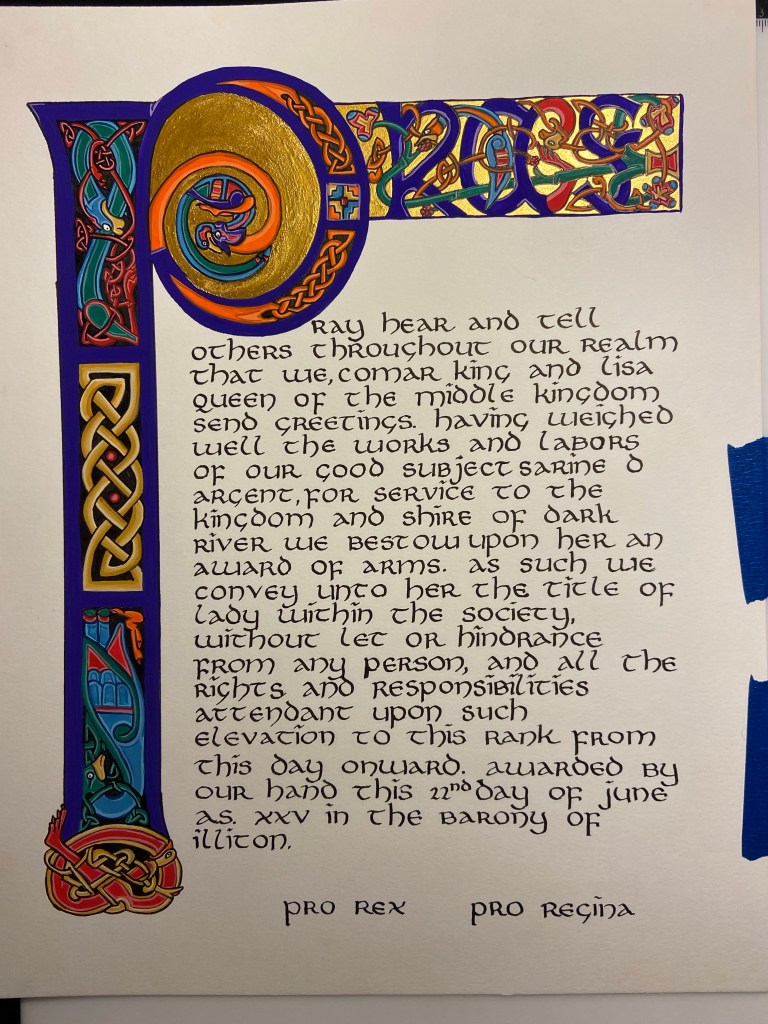 Pray hear and tell
others throughout our realm
that we, Comar King and Lisa
Queen of the Middle Kingdom
send greetings. Having weighed
well the works and labors
of our good subject Sarine d
Argent, for service to the
Kingdom and Shire of Dark
River we bestow upon her an
Award of Arms. As such we
convey unto her the title of
Lady within the Society,
without let or hindrance
from any person, and all the
rights and responsibilities
attendant upon such
elevation to this rank from
this day onward. Awarded by
our hand this 22nd day of June
AS. XXV in the Barony of
Illiton.
Pro Rex Pro Regina